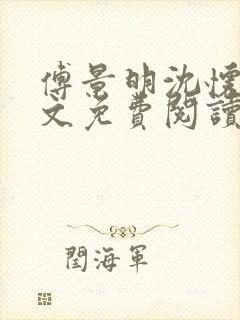 傅景明沈懷
文免費閱讀
閆海軍